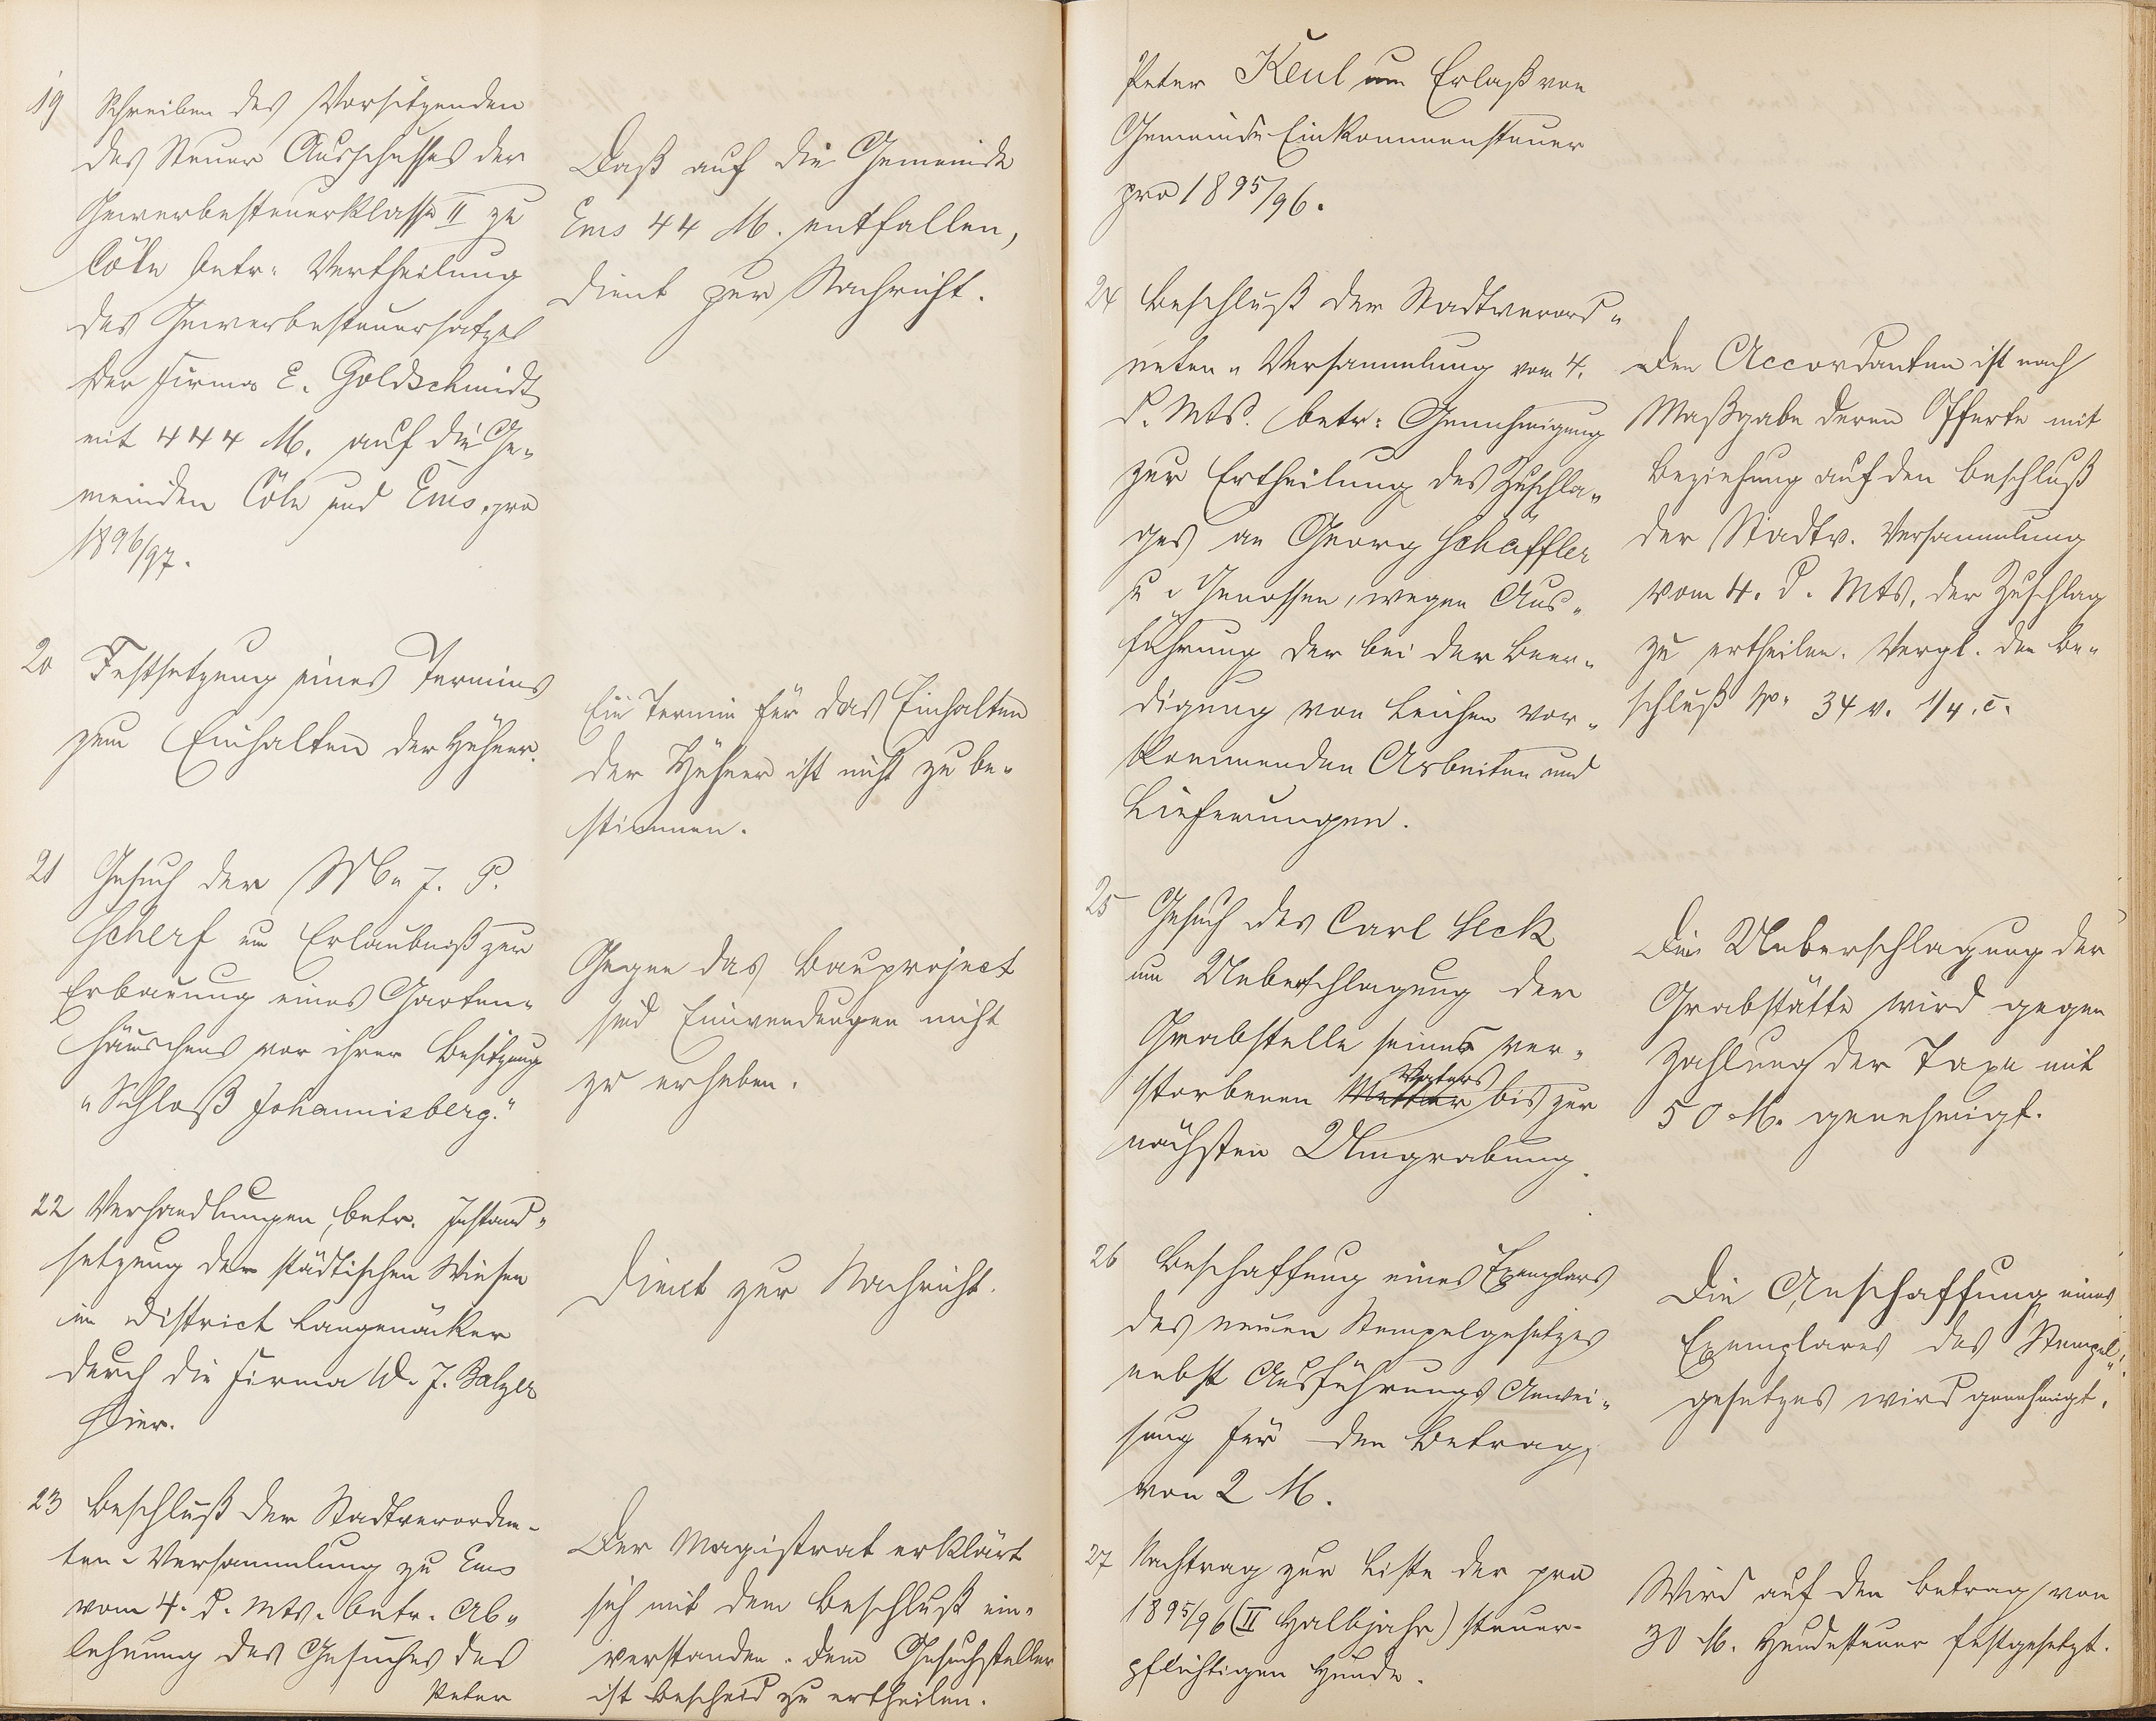 19 Schreiben des Vorsitzenden
des Steuer Ausschusses der
Gewerbesteuerklasse II zu
Cöln betr. Vertheilung
des Gewerbesteuersatzes
der Firma E. Goldschmidt
mit 444 M. auf die Ge-
meinden Cöln und Ems, pro
1896/97.
Daß auf die Gemeinde
Ems 44 M. entfallen,
dient zur Nachricht.
20 Festsetzung eines Termins
zum Einhalten der Hühner.
Ein Termin für das Einhalten
der Hühner ist nicht zu be-
stimmen.
21 Gesuch der J. P.
Scherf um Erlaubniß zur
Erbauung eines Garten-
häuschens vor ihrer Besitzung
"Schloß Johannisberg."
Gegen das Bauproject
sind Einwendungen nicht
zu erheben.
22 Verhandlungen, betr. Instand-
setzung der städtischen Wiesen
im District Langenäcker
durch die Firma W. J. Balzer
hier.
Dient zur Nachricht.
23 Beschluß der Stadtverordne-
ten-Versammlung zu Ems
vom 4. d. Mts. betr. Ab-
lehnung des Gesuches des
Peter
Der Magistrat erklärt
sich mit dem Beschluß ein-
verstanden. Dem Gesuchsteller
ist Bescheid zu ertheilen.
Peter Keul um Erlaß von
Gemeinde-Einkommensteuer
pro 1895/96.
24 Beschluß der Stadtverord-
neten-Versammlung vom 4.
d. Mts. betr. Genehmigung
zur Ertheilung des Zuschla-
ges an Georg Schäffler
u. Genossen, wegen Aus-
führung der bei der Beer-
digung von Leichen vor-
kommenden Arbeiten und
Lieferungen.
Den Accordanten ist nach
Maßgabe deren Offerte mit
Beziehung auf den Beschluß
der Stadtv. Versammlung
vom 4. d. Mts. der Zuschlag
zu ertheilen. Vergl. den Be-
schluß No. 34 v. 1/4. c.
25 Gesuch des Carl Seck
um Ueberschlagung der
Grabstelle seines ver-
Vaters
storbenen Mutter bis zur
nächsten Umgrabung.
Die Ueberschlagung der
Grabstätte wird gegen
Zahlung der Taxe mit
50 M. genehmigt.
26 Beschaffung eines Exemplars
des neuen Stempelgesetzes
nebst Ausführungs Anwei-
sung für den Betrag
von 2 M.
Die Anschaffung eines
Exemplares des Stempel-
gesetzes wird genehmigt.
27 Nachtrag zur Liste der pro
1895/96 (II Halbjahr) steuer-
pflichtigen Hunde.
Wird auf den Betrag von
30 M. Hundesteuer festgesetzt.